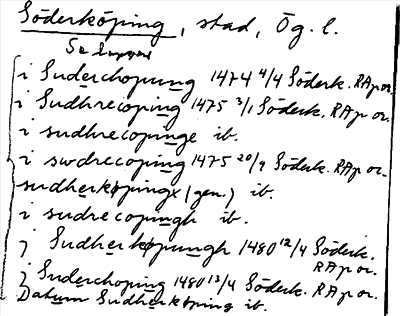 Söderköping, stad, Ög. l.
i Suderchopung 1474 4/4 Söderk. RAp or.
i Sudhrecoping 1475 3/1 Söderk. RAp or.
i sudhrecopinge ib.
i swdrecoping 1475 20/9 Söderk. RAp or.
sudherkøpingx (gen.) ib.
i sudrecopingh ib.
j Sudherkøpungh 1480 12/4 Söderk.
RAp or.
j Suderchoping 1480 13/4 Söderk. RAp or.
Datum Sudherkøping ib.